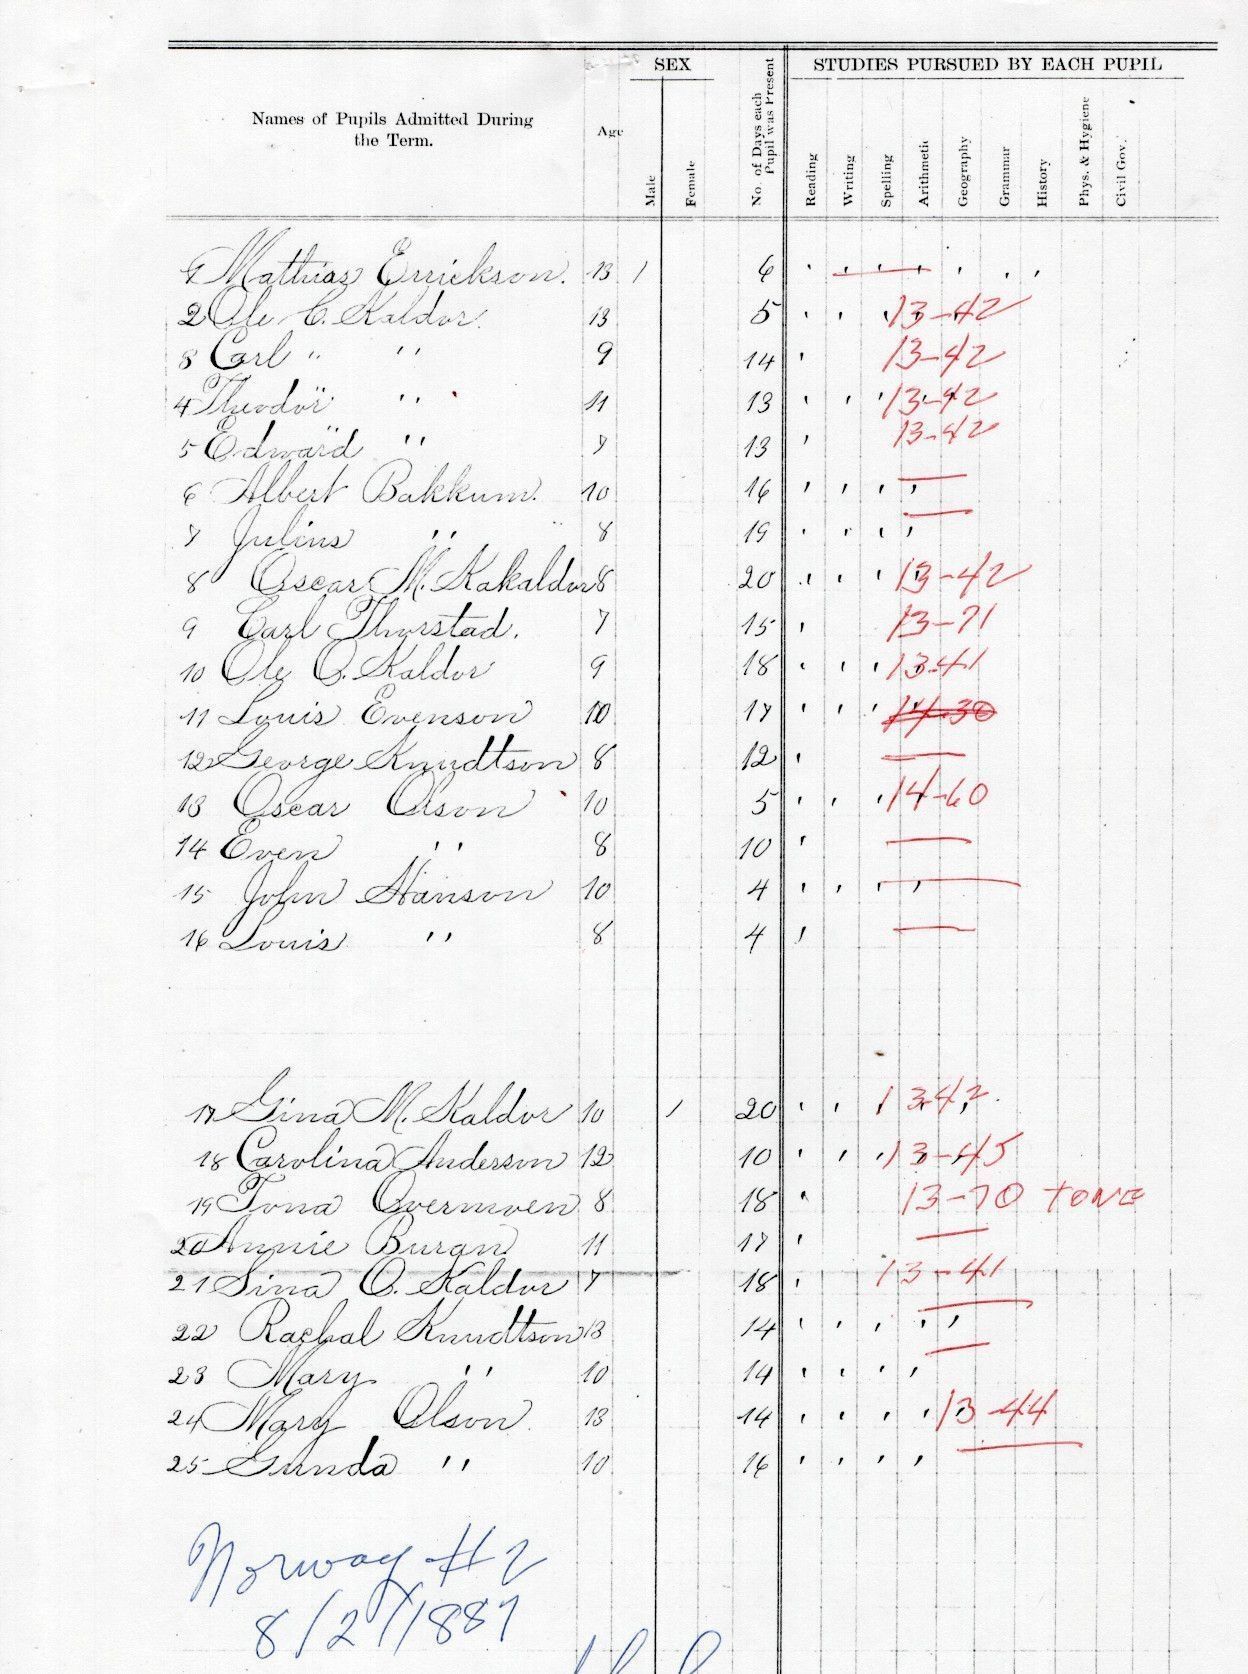 SEX
STUDIES PURSUED BY EACH PUPIL
Names of Pupils Admitted During
the Term.
Age
Male
Female
No. of Days each
Pupil was Present
Reading
Writing
Spelling
Arithmetic
Geography
Grammar
History
Phys. & Hygiene
Civil Gov.
1 Mathias Errickson. 13 / 6 ' ' ' ' ' ' '
2 Ole C. Kaldor. 13 5 ' ' ' ' ' 13-42
3 Carl " " 9 14 ' 13-42
4 Theodor " 11 13 ' ' ' ' ' 13-42
5 Edward " 7 13 ' 13-42
6 Albert Bakkum. 10 16 ' ' ' '
7 Julius " 8 19 ' ' ' '
8 Oscar M. Kakaldor 8 20 ' ' ' ' 13-42
9 Carl Thorstad. 7 15 ' 13-71
10 Ole O. Kaldor 9 18 ' ' ' ' 13-41
11 Louis Evenson 10 17 ' ' ' ' 14-30
12 George Knudtson 8 12 '
13 Oscar Olson 10 5 ' ' ' ' 14-60
14 Even " 8 10 '
15 John Hanson 10 4 ' ' ' '
16 Louis " 8 4 '
17 Gina M. Kaldor 10 / 20 ' ' ' ' ' 13-42
18 Carolina Anderson 12 10 ' ' ' ' ' 13-45
19 Tona Overmoen 8 18 ' 13-70 TONE
20 Annie Buran 11 17 '
21 Sina O. Kaldor 7 18 ' 13-41
22 Rachal Knudtson 13 14 ' ' ' ' '
23 Mary " 10 14 ' ' ' '
24 Mary Olson 13 14 ' ' ' ' ' 13-44
25 Gunda " 10 16 ' ' ' '
Norway #2
8/27/1887